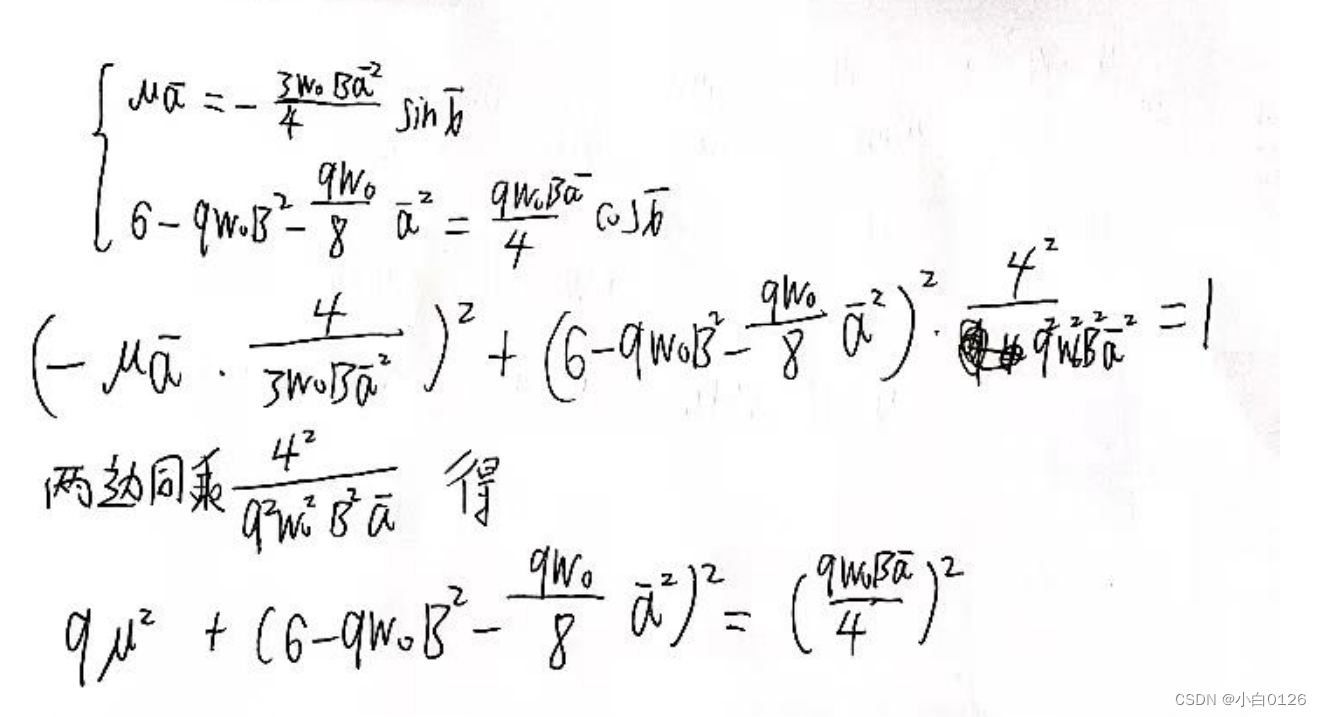 μā = - 3w₀Bā²/4 sin b̄
6 - 9w₀B² - 9w₀/8 ā² = 9w₀Bā/4 cos b̄
(-μā · 4/(3w₀Bā²))² + (6 - 9w₀B² - 9w₀/8 ā²)² · 4²/(9²w₀²B²ā²) = 1
两边同乘 4²/(9²w₀²B²ā) 得
9μ² + (6 - 9w₀B² - 9w₀/8 ā²)² = (9w₀Bā/4)²
CSDN @小白0126